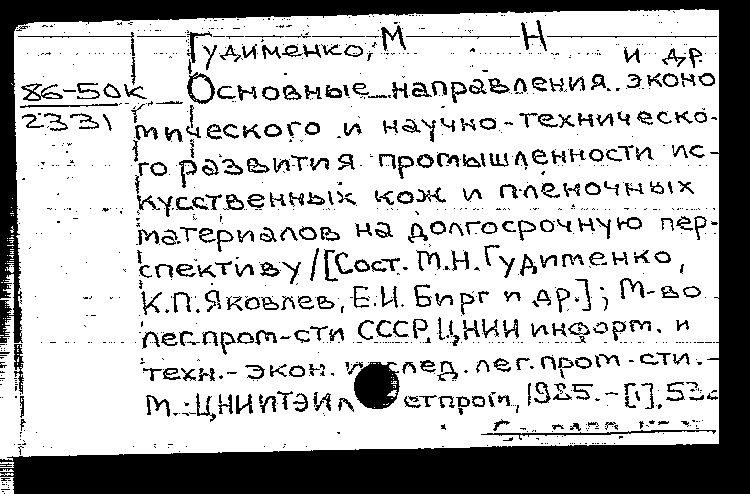 Гудименко, М Н
и др.
86-50к Основные направления эконо
2331 мического и научно-техническо-
го развития промышленности ис-
кусственных кож и пленочных
материалов на долгосрочную пер-
спективу/[Сост. М.Н.Гудименко,
К.П.Яковлев, Е.И. Бирг и др.]; М-во
лег.пром-сти СССР, ЦНИИ информ. и
техн.-экон. исслед. лег. пром-сти.-
М.: ЦНИИТЭИ 1985.-[1], 53с